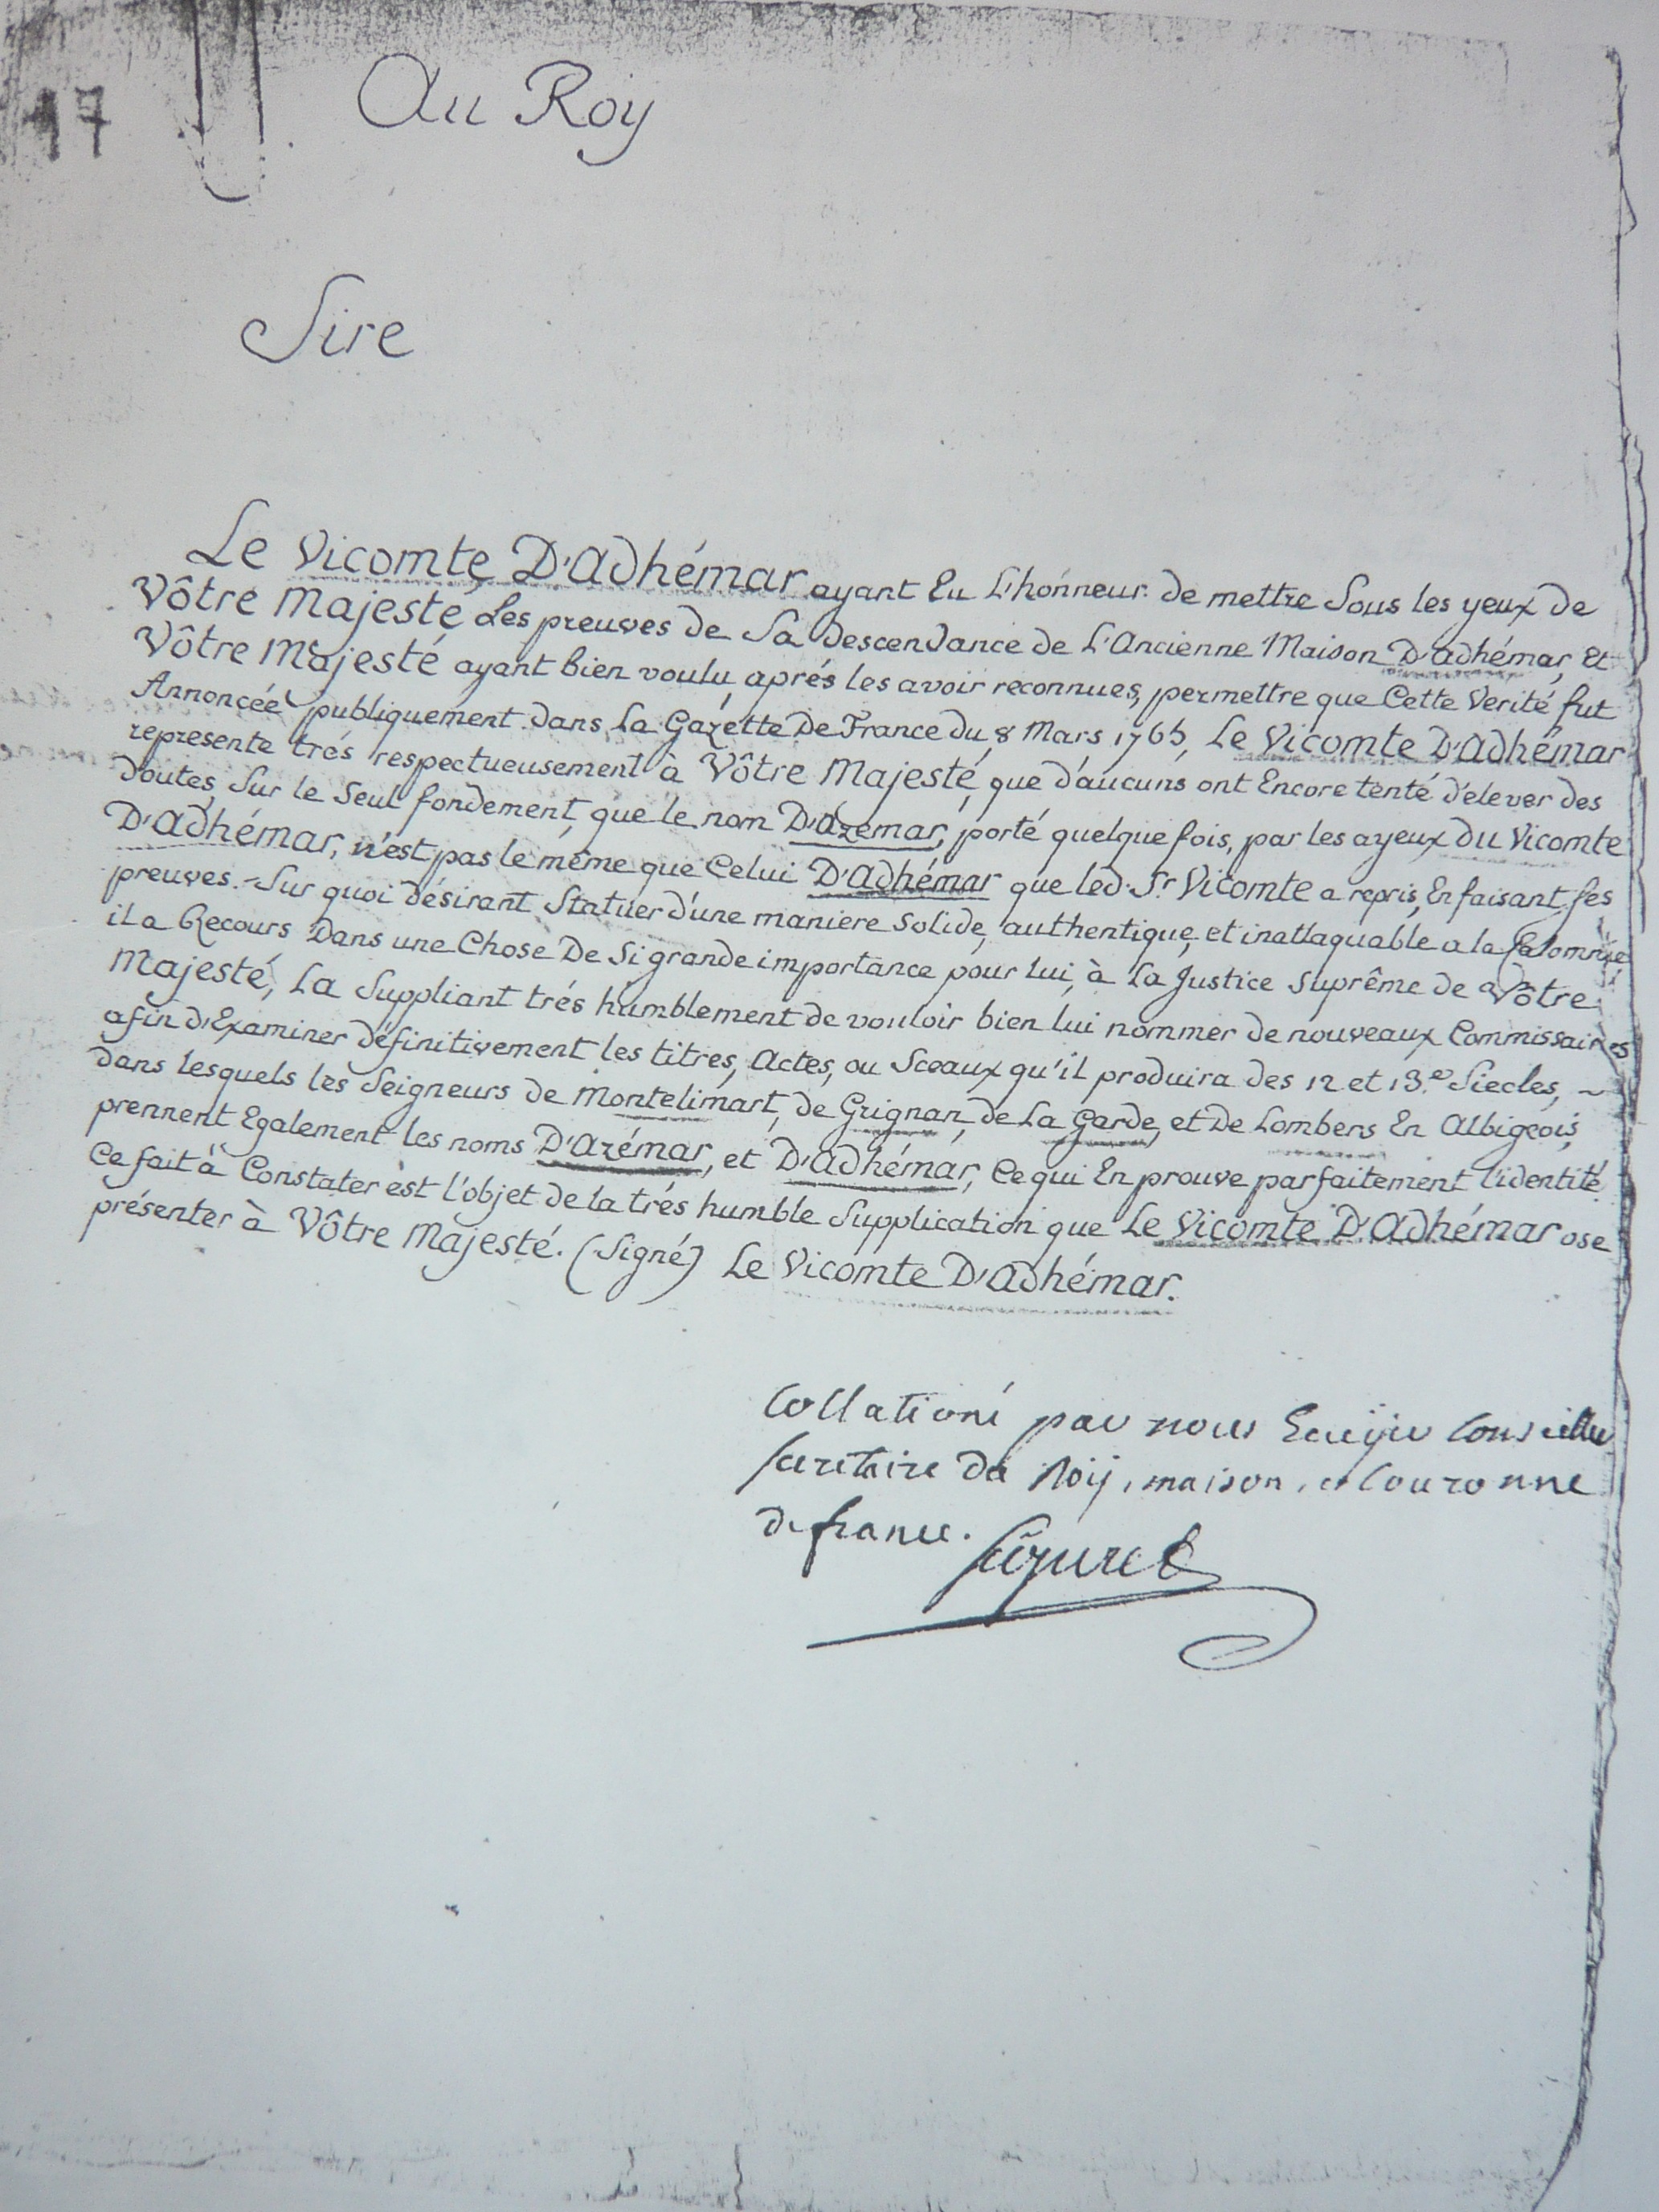 17
Au Roy
Sire
Le Vicomte D'Adhémar ayant Eu L'honneur de mettre Sous les yeux de
Vôtre Majesté Les preuves de Sa descendance de L'Ancienne Maison D'adhémar, Et
Vôtre Majesté ayant bien voulu, aprés les avoir reconnues, permettre que Cette Verité fut
Annoncée publiquement dans La Gazette De France du 8 Mars 1765, Le Vicomte D'Adhémar
represente trés respectueusement à Vôtre Majesté, que d'aucuns ont Encore tenté d'elever des
doutes, Sur le Seul fondement, que le nom D'azemar, porté quelque fois, par les ayeux du Vicomte
D'Adhémar, n'est pas le même que Celui D'Adhémar que led. Sr Vicomte a repris, En faisant ses
preuves. Sur quoi désirant Statuer d'une maniere solide, authentique, et inattaquable a la Calomnie
il a Recours Dans une Chose De Si grande importance pour lui, à La Justice Suprême de Vôtre
Majesté, La Suppliant trés humblement de vouloir bien lui nommer de nouveaux Commissaires
afin d'Examiner définitivement les titres, Actes, ou Sceaux qu'il produira des 12 et 13.e Siecles, ~
dans lesquels les Seigneurs de Montelimart, de Grignan, de La Garde, et De Lombers En Albigeois,
prennent Egalement les noms D'Azémar, et D'Adhémar, Ce qui En prouve parfaitement l'identité.
Ce fait à Constater est l'objet de la trés humble Supplication que Le Vicomte D'Adhémar ose
présenter à Vôtre Majesté. (Signé) Le Vicomte D'Adhémar.
Collationé par nous Ecuÿer Conseiller
secretaire du Roÿ, maison, et Couronne
de france. Seguret